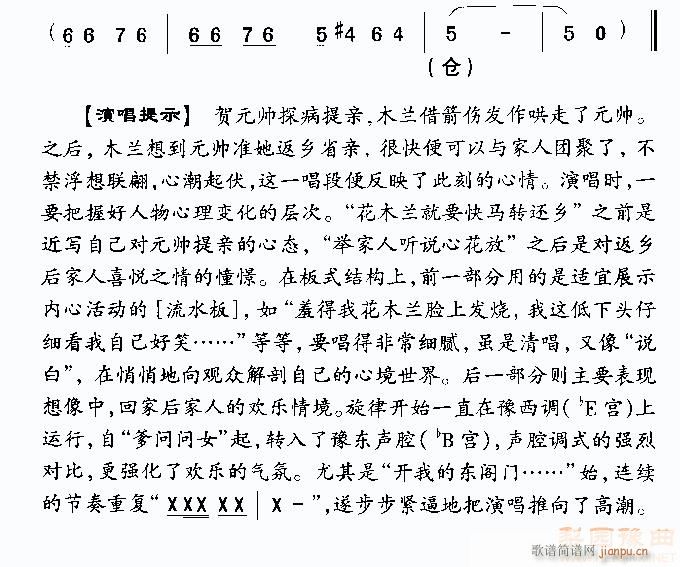 ( 6 6 7 6 | 6 6 7 6 5 #4 6 4 | 5 - | 5 0 ) ‖
(仓)
【演唱提示】 贺元帅探病提亲,木兰借箭伤发作哄走了元帅。
之后,木兰想到元帅准她返乡省亲,很快便可以与家人团聚了,不
禁浮想联翩,心潮起伏,这一唱段便反映了此刻的心情。演唱时,一
要把握好人物心理变化的层次。“花木兰就要快马转还乡”之前是
近写自己对元帅提亲的心态,“举家人听说心花放”之后是对返乡
后家人喜悦之情的憧憬。在板式结构上,前一部分用的是适宜展示
内心活动的[流水板],如“羞得我花木兰脸上发烧,我这低下头仔
细看我自己好笑……”等等,要唱得非常细腻,虽是清唱,又像“说
白”,在悄悄地向观众解剖自己的心境世界。后一部分则主要表现
想像中,回家后家人的欢乐情境。旋律开始一直在豫西调(♭E宫)上
运行,自“爹问问女”起,转入了豫东声腔(♭B宫),声腔调式的强烈
对比,更强化了欢乐的气氛。尤其是“开我的东阁门……”始,连续
的节奏重复“X X X X X | X - ”,遂步步紧逼地把演唱推向了高潮。
梨园豫曲
歌谱简谱网 jianpu.cn